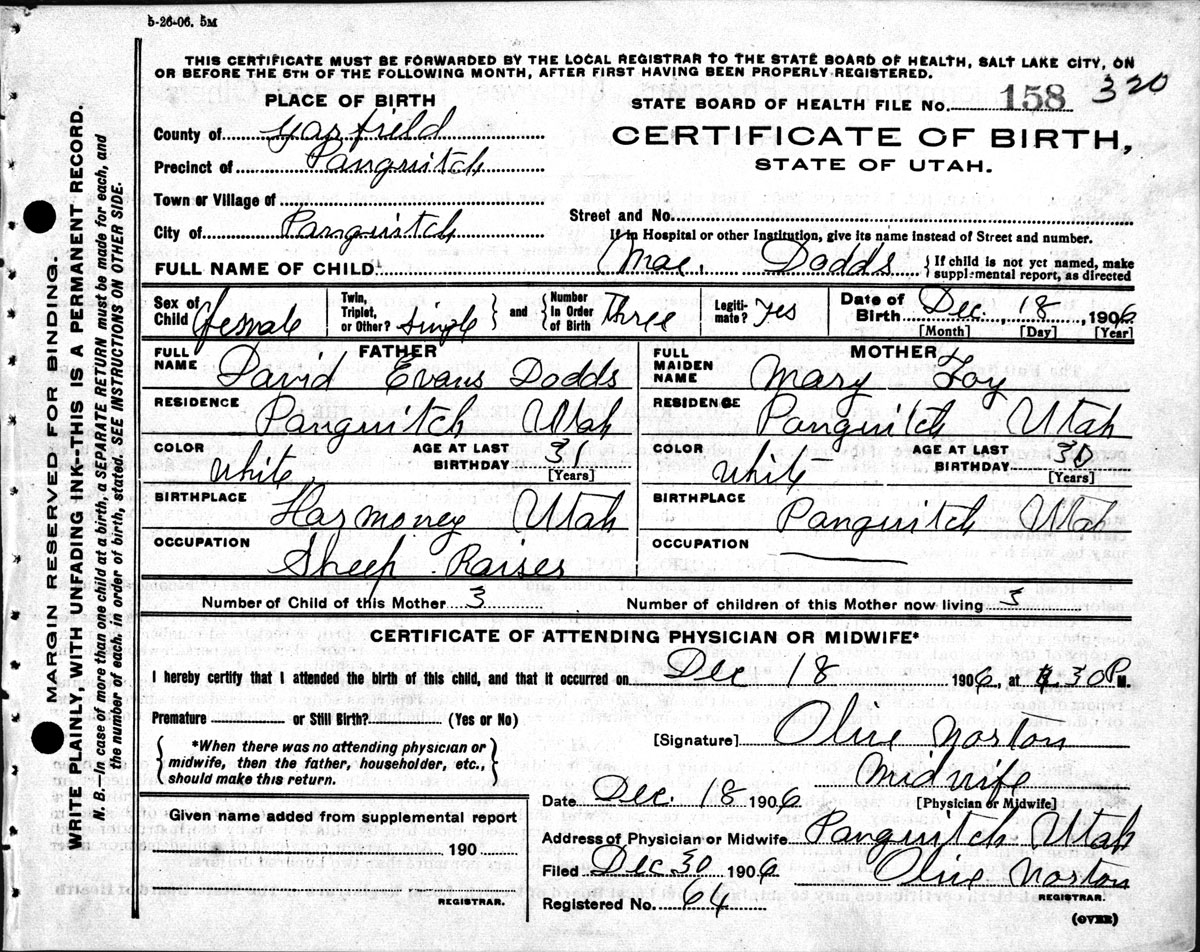 5-26-06. 5M
THIS CERTIFICATE MUST BE FORWARDED BY THE LOCAL REGISTRAR TO THE STATE BOARD OF HEALTH, SALT LAKE CITY, ON
OR BEFORE THE 5TH OF THE FOLLOWING MONTH, AFTER FIRST HAVING BEEN PROPERLY REGISTERED.
PLACE OF BIRTH
STATE BOARD OF HEALTH FILE No. 158 320
County of Garfield
CERTIFICATE OF BIRTH,
Precinct of Panguitch
STATE OF UTAH.
Town or Village of
Street and No.
City of Panguitch
If in Hospital or other Institution, give its name instead of Street and number.
FULL NAME OF CHILD Mae. Dodds { If child is not yet named, make supplemental report, as directed
Sex of Child female
Twin, Triplet, or Other? Single } and { Number In Order of Birth Three
Legiti-mate? Yes
Date of Birth Dec., 18, 1906
[Month] [Day] [Year]
FATHER
FULL NAME David Evans Dodds
RESIDENCE Panguitch Utah
COLOR White AGE AT LAST BIRTHDAY 31 [Years]
BIRTHPLACE Harmoney Utah
OCCUPATION Sheep Raiser
MOTHER
FULL MAIDEN NAME Mary Foy
RESIDENCE Panguitch Utah
COLOR White AGE AT LAST BIRTHDAY 30 [Years]
BIRTHPLACE Panguitch Utah
OCCUPATION
Number of Child of this Mother 3 Number of children of this Mother now living 3
CERTIFICATE OF ATTENDING PHYSICIAN OR MIDWIFE*
I hereby certify that I attended the birth of this child, and that it occurred on Dec 18 1906, at 30 P M.
Premature or Still Birth? (Yes or No)
[Signature] Olive Norton
{ *When there was no attending physician or midwife, then the father, householder, etc., should make this return. }
Midwife
[Physician or Midwife]
Date Dec. 18 1906
Given name added from supplemental report
190
REGISTRAR.
Address of Physician or Midwife Panguitch Utah
Filed Dec 30 1906 Olive Norton
REGISTRAR.
Registered No. 64
(OVER)
MARGIN RESERVED FOR BINDING.
WRITE PLAINLY, WITH UNFADING INK--THIS IS A PERMANENT RECORD.
N. B.—In case of more than one child at a birth, a SEPARATE RETURN must be made for each, and
the number of each, in order of birth, stated. SEE INSTRUCTIONS ON OTHER SIDE.